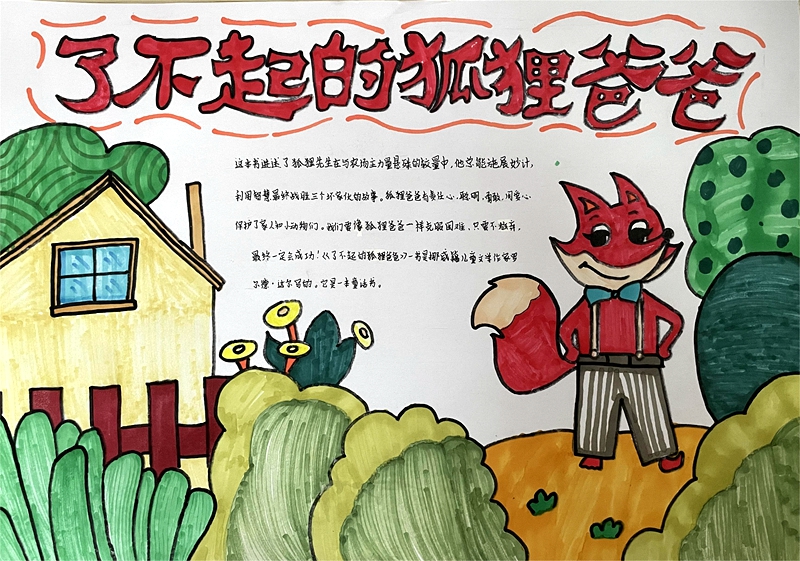 了不起的狐狸爸爸
这本书讲述了狐狸先生在与农场主力量悬殊的较量中，他总能施展妙计，
利用智慧最终战胜三个坏家伙的故事。狐狸爸爸有责任心、聪明、勇敢、有爱心，
保护了家人和小动物们。我们要像狐狸爸爸一样克服困难，只要不放弃，
最终一定会成功！《了不起的狐狸爸爸》一书是挪威籍儿童文学作家罗
尔德·达尔写的。它是一本童话书。